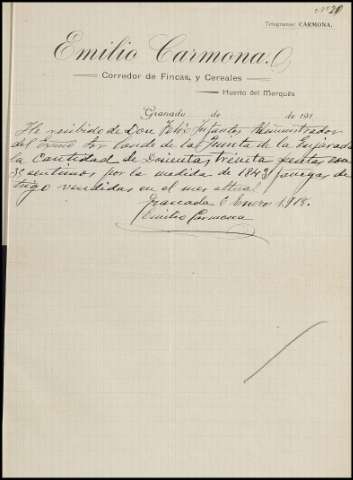 Nº 20
Telegramas: CARMONA.
Emilio Carmona.
Corredor de Fincas, y Cereales
Huerto del Marqués
Granada de de 191
He recibido de Don Infantes Administrador
del Exmo Sor Conde de la Quinta de la Enjarada
la Cantidad de Doscientas treinta pesetas con
3 centimos por la medida de 1843 fanegas de
trigo vendidas en el mes actual
Granada Enero 1918.
Emilio Carmona